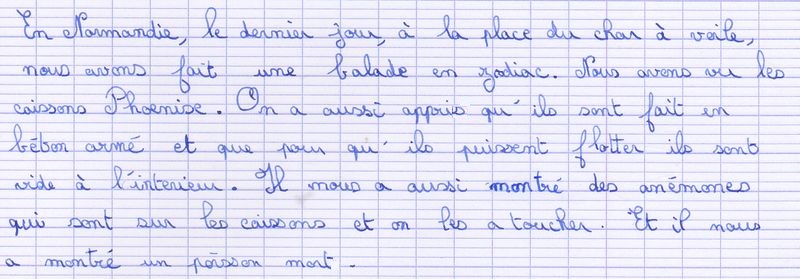 En Normandie, le dernier jour, à la place du char à voile,
nous avons fait une balade en zodiac. Nous avons vu les
caissons Phoenixe. On a aussi appris qu'ils sont fait en
béton armé et que pour qu'ils puissent flotter ils sont
vide à l'interieur. Il nous a aussi montré des anémones
qui sont sur les caissons et on les a toucher. Et il nous
a montré un poisson mort.